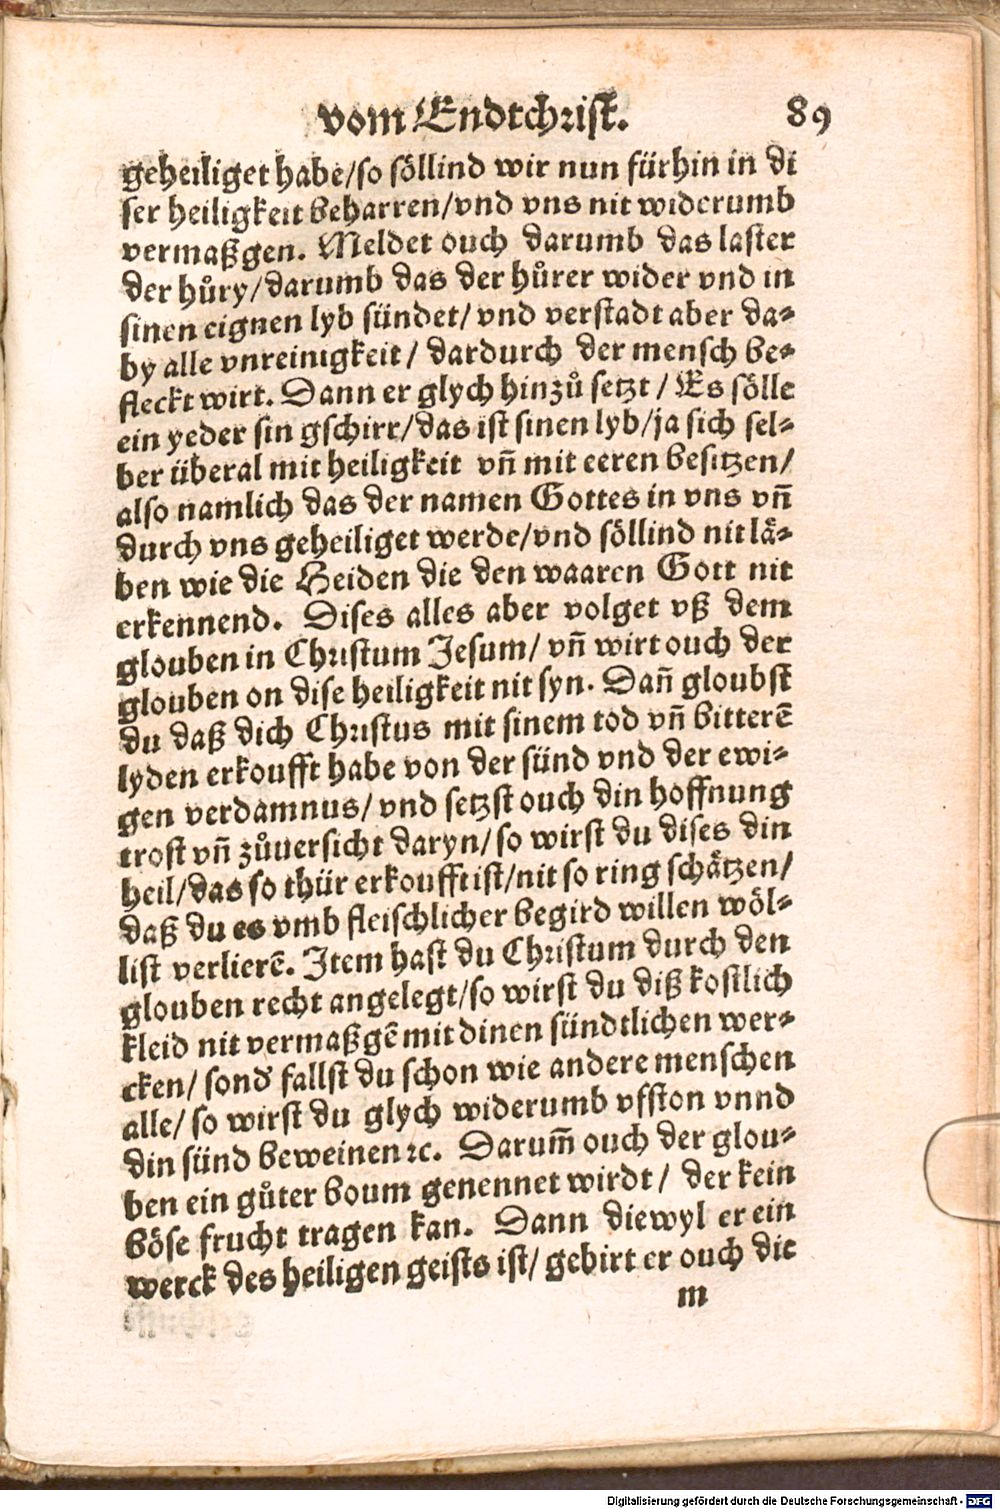 vom Endtchrist. 89
geheiliget habe/so söllind wir nun fürhin in di
ser heiligkeit beharren/vnd vns nit widerumb
vermaßgen. Meldet ouch darumb das laster
der hůry/darumb das der hůrer wider vnd in
sinen eignen lyb sündet/ vnd verstadt aber da-
by alle vnreinigkeit/ dardurch der mensch be-
fleckt wirt. Dann er glych hinzů setzt / Es sölle
ein yeder sin gschirr/das ist sinen lyb/ja sich sel-
ber überal mit heiligkeit vñ mit eeren besitzen/
also namlich das der namen Gottes in vns vñ
durch vns geheiliget werde/vnd söllind nit lä-
ben wie die Heiden die den waaren Gott nit
erkennend. Dises alles aber volget vß dem
glouben in Christum Jesum/ vñ wirt ouch der
glouben on dise heiligkeit nit syn. Dañ gloubst
du daß dich Christus mit sinem tod vñ bitterē
lyden erkoufft habe von der sünd vnd der ewi-
gen verdamnus/ vnd setzst ouch din hoffnung
trost vñ zůuersicht daryn/so wirst du dises din
heil/das so thür erkoufft ist/nit so ring schätzen/
daß du es vmb fleischlicher begird willen wöl-
list verlierē. Item hast du Christum durch den
glouben recht angelegt/so wirst du diß kostlich
kleid nit vermaßgē mit dinen sündtlichen wer-
cken/ sond' fallst du schon wie andere menschen
alle/ so wirst du glych widerumb vfston vnnd
din sünd beweinen ꝛc. Darum̃ ouch der glou-
ben ein gůter boum genennet wirdt/ der kein
böse frucht tragen kan. Dann diewyl er ein
werck des heiligen geists ist/ gebirt er ouch die
m
Digitalisierung gefördert durch die Deutsche Forschungsgemeinschaft - DFG